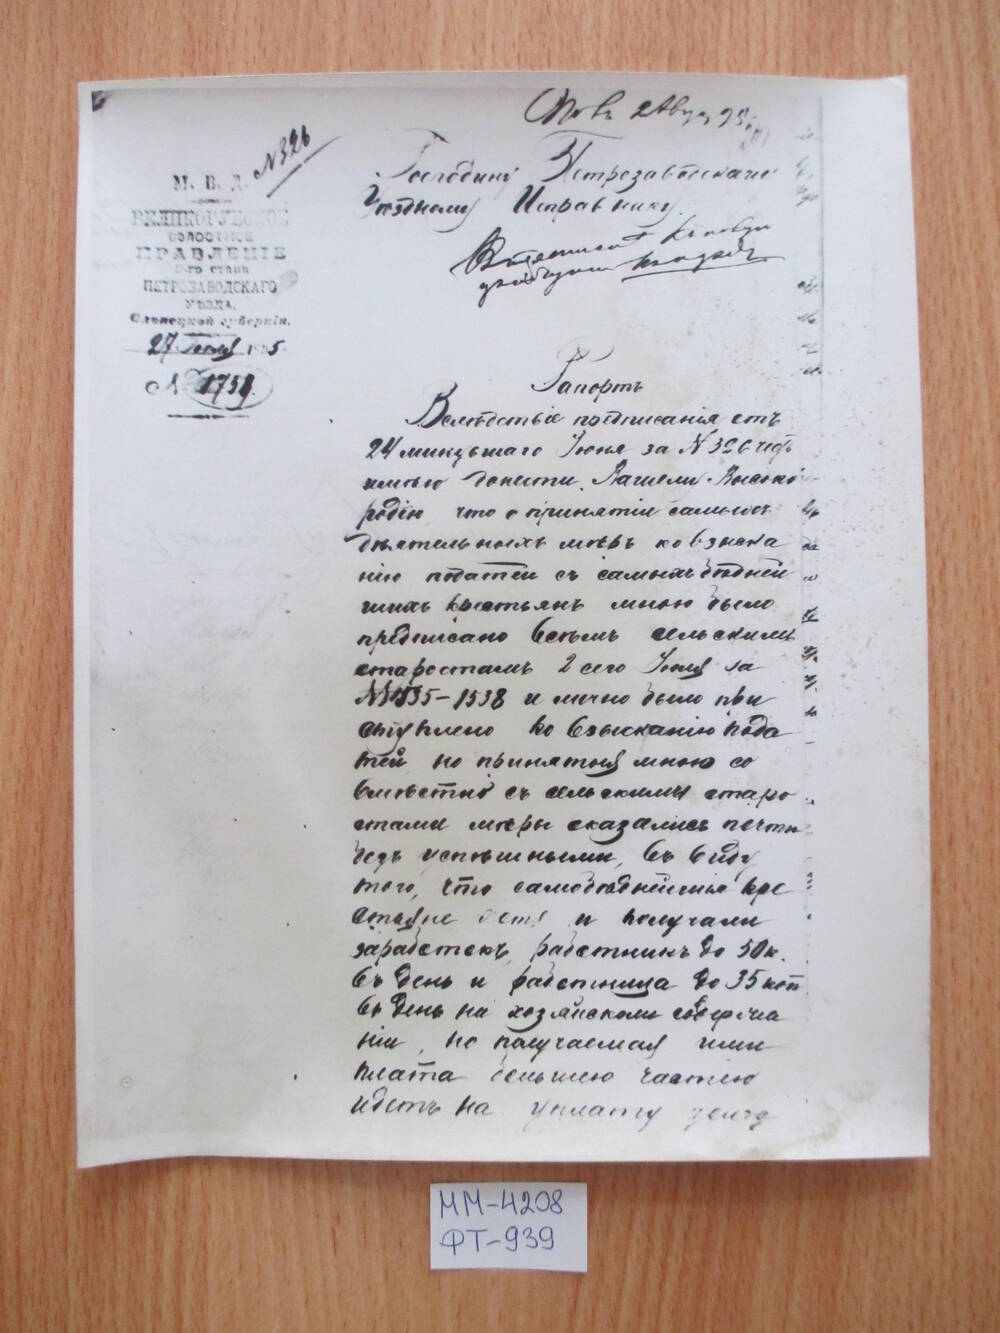 2 Авг. 95
№ 326
М. В. Д.
ВЕЛИКОГУБСКОЕ
ВОЛОСТНОЕ
ПРАВЛЕНІЕ
2-го стана
ПЕТРОЗАВОДСКАГО
УѢЗДА.
Олонецкой губерніи.
27 Іюля 1895
№ 1759.
Господину Петрозаводскому
Уѣздному Исправнику.
Рапортъ
Вслѣдствіе предписанія отъ
24 минувшаго Іюня за № 326 честь
имѣю донести Вашему Высоко
родію, что о принятіи самыхъ
дѣятельныхъ мѣръ ко взыска
нію податей съ самыхъ бѣднѣй
шихъ крестьянъ мною было
предписано всѣмъ сельскимъ
старостамъ 2 сего Іюля за
№ 1535-1538 и лично было при
ступлено ко взысканію пода
тей, но принятыя мною со
вмѣстно съ сельскими старо
стами мѣры оказались почти
безъ успѣшными, въ виду
того, что самобѣднѣйшіе кре
стьяне хотя и получали
заработокъ, работникъ до 50 к.
въ день и работница до 35 коп
въ день на хозяйскомъ содержа
ніи, но получаемая ими
плата большею частію
идетъ на уплату
ММ-4208
ФТ-939